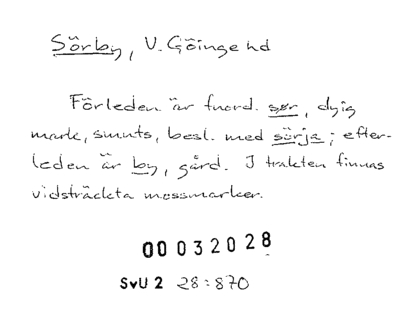 Sörby, V. Göinge hd
Förleden är fnord. sør, dyig
mark, smuts, besl. med sörja; efter-
leden är by, gård. I trakten finnas
vidsträckta mossmarker.
00 032028
SvU 2 28:870